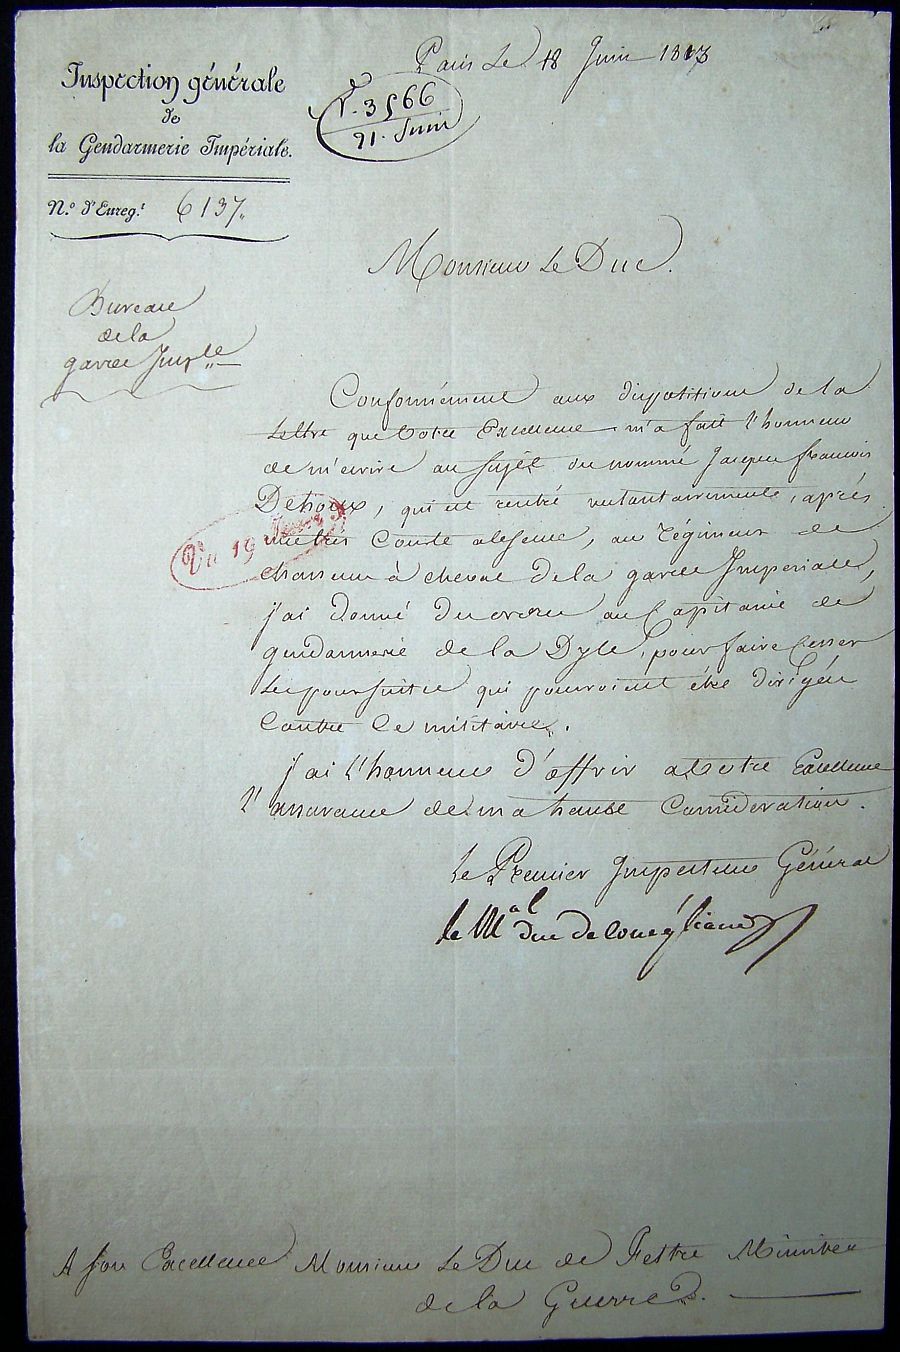 Paris Le 18 Juin 1813
Inspection générale
de
la Gendarmerie Impériale.
N.º d'Enreg.t 6137.
V. 3566
21. Juin
Monsieur Le Duc.
Bureau
de la
garde Imp.le
Conformément aux dispositions de la
Lettre que Votre Excellence m'a fait l'honneur
de m'ecrire au Sujet du nommé Jacques francois
Dehoux, qui est rentré volontairement, après
une très Courte absence, au régiment de
chasseurs à cheval de la garde Imperiale,
j'ai donné des ordres au Capitaine de
gendarmerie de la Dyle, pour faire Cesser
Les poursuites qui pourroient être dirigées
Contre Ce militaire.
Vu 19
j'ai l'honneur d'offrir a Votre Excellence
l'assurance de ma haute Consideration.
Le Premier Inspecteur Général
le M.al duc de Conegliano
A Son Excellence Monsieur Le Duc de Feltre Ministre
de la Guerre.